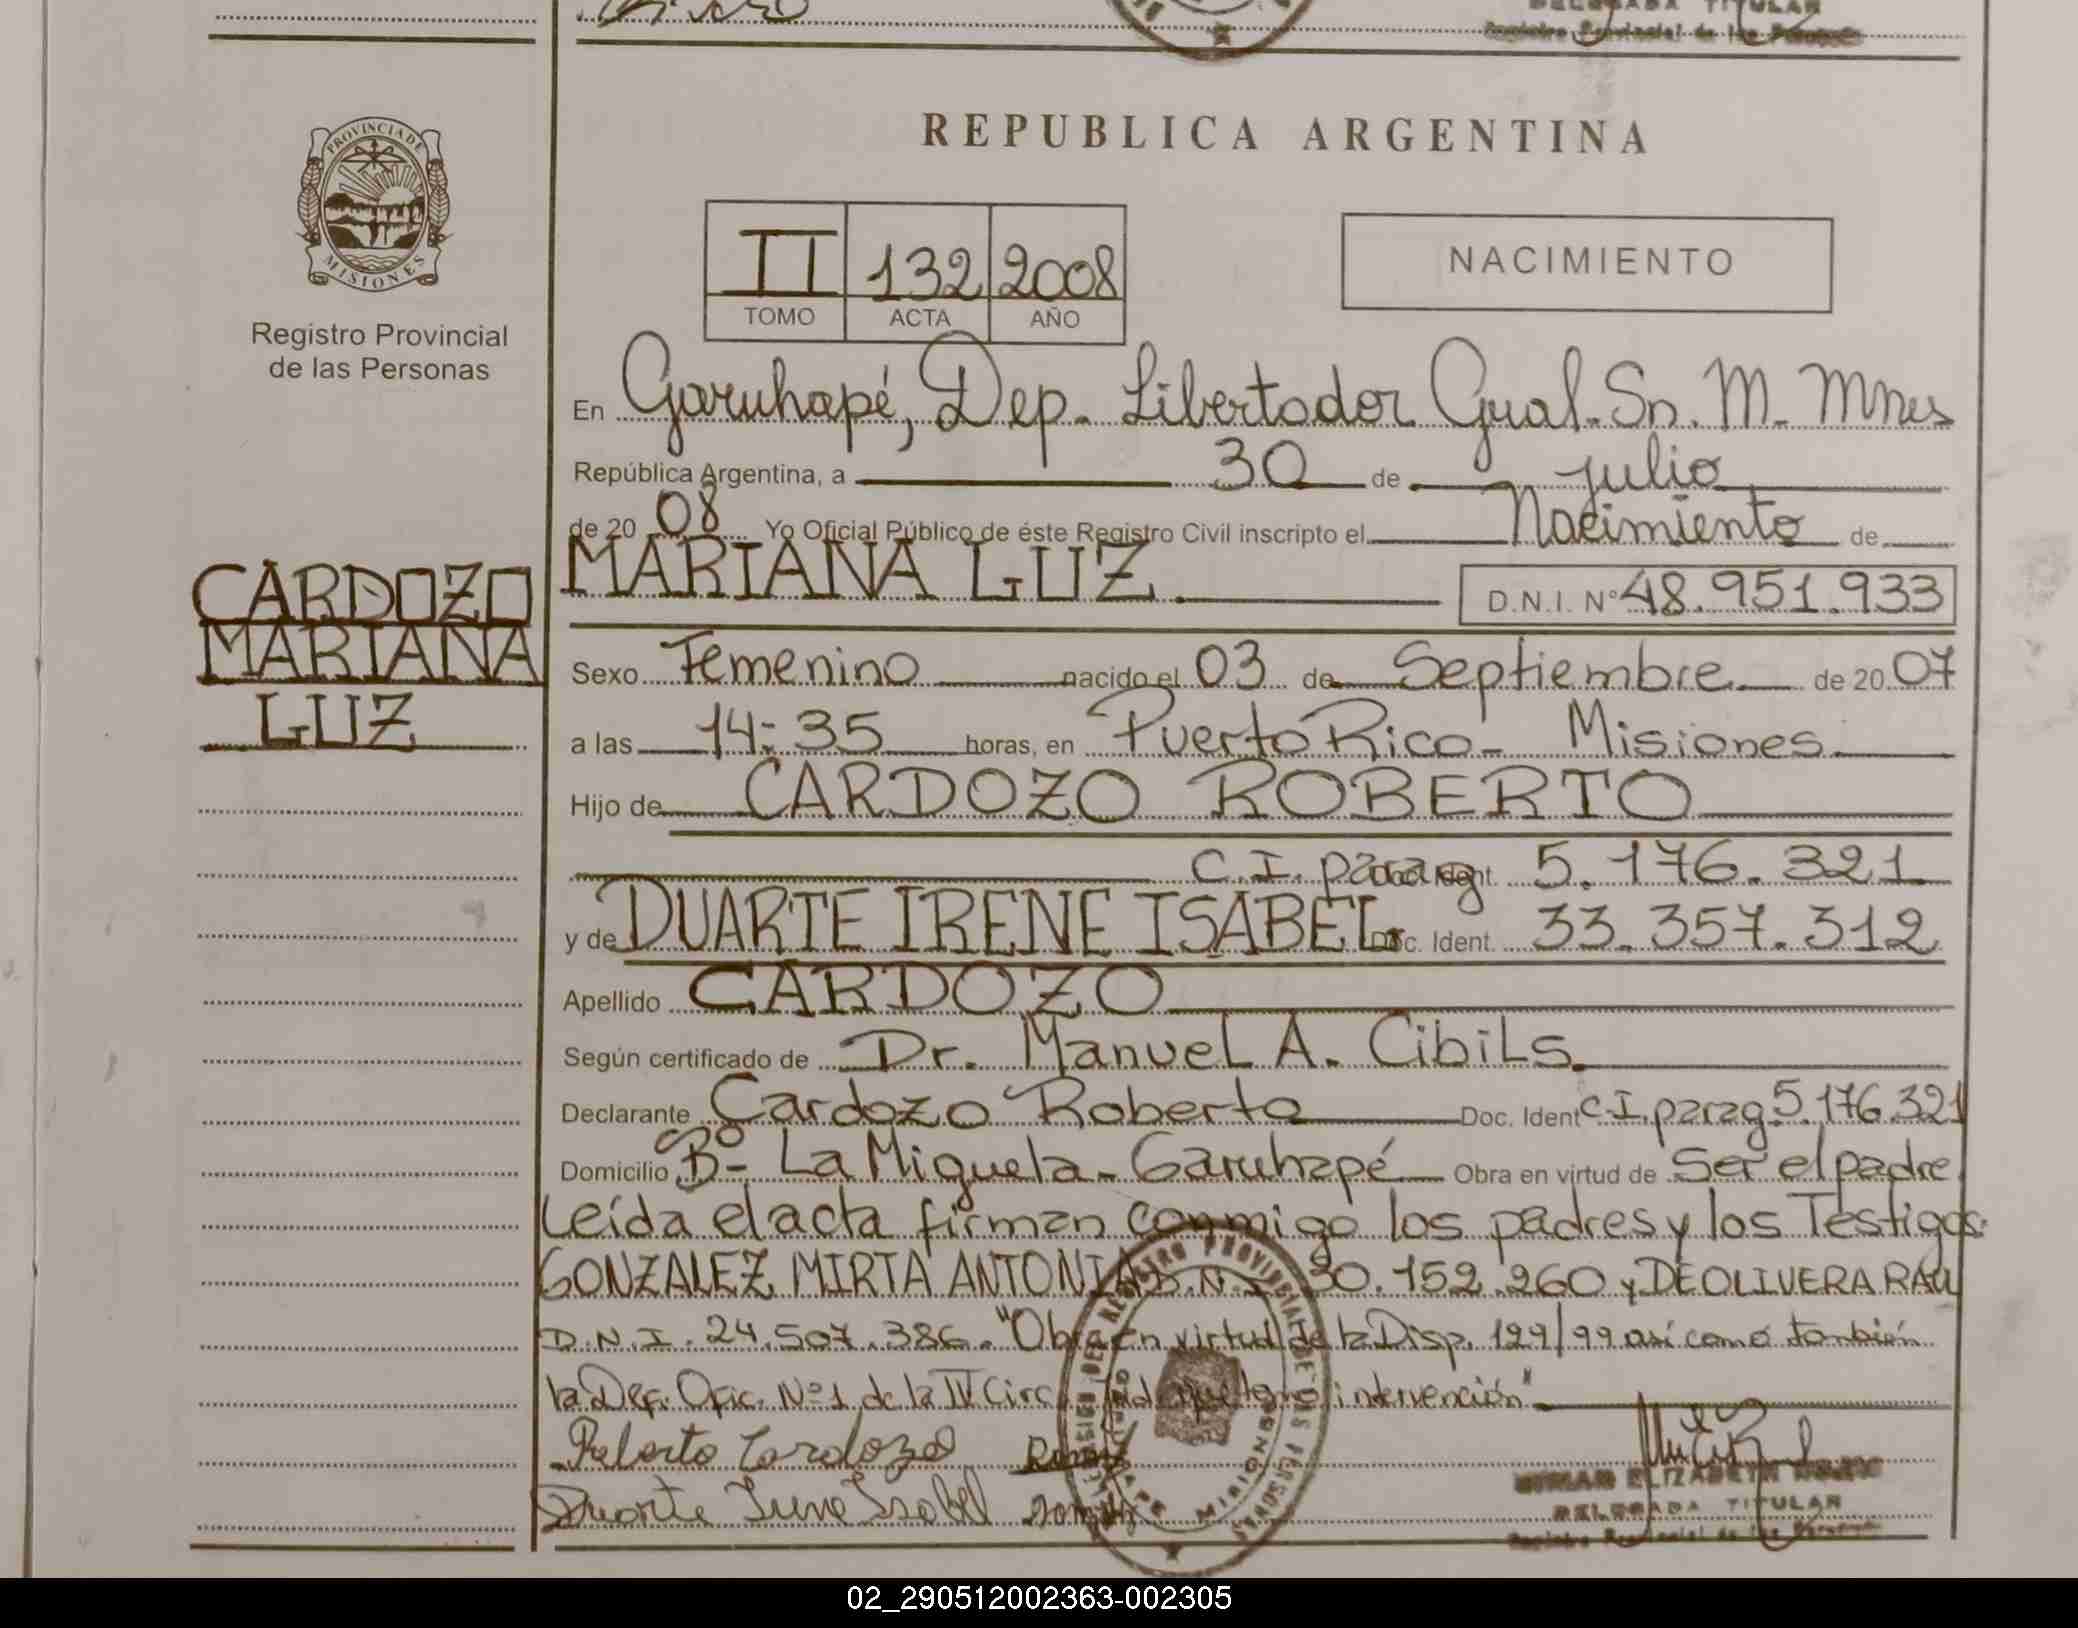 DELEGADA TITULAR
Registro Provincial de las Personas
REPUBLICA ARGENTINA
PROVINCIA DE
MISIONES
Registro Provincial
de las Personas
II 132 2008
TOMO ACTA AÑO
NACIMIENTO
En Garuhapé, Dep. Libertador Gral. Sn. M. Mnes
República Argentina, a 30 de julio
de 20 08 Yo Oficial Público de éste Registro Civil inscripto el Nacimiento de
CARDOZO
MARIANA
LUZ
MARIANA LUZ D.N.I. Nº 48.951.933
Sexo Femenino nacido el 03 de Septiembre de 20 07
a las 14:35 horas, en Puerto Rico - Misiones
Hijo de CARDOZO ROBERTO
C.I. parag Doc. Ident. 5.176.321
y de DUARTE IRENE ISABEL Doc. Ident. 33.357.312
Apellido CARDOZO
Según certificado de Dr. Manuel A. Cibils.
Declarante Cardozo Roberto Doc. Ident C.I. parag 5.176.321
Domicilio Bº- La Miguela - Garuhapé Obra en virtud de Ser el padre
Leída el acta firman conmigo los padres y los Testigos:
GONZALEZ MIRTA ANTONIA D.N.I. 30.152.260 y DEOLIVERA RAUL
D.N.I. 24.507.386. "Obra en virtud de la Disp. 129/99 así como también
la Def. Ofic. Nº 1 de la IV Circ. Jud que tomo intervención"
Roberto Cardozo
Duarte Irene Isabel
MIRIAM ELIZABETH
DELEGADA TITULAR
Registro Provincial de las Personas
02_290512002363-002305